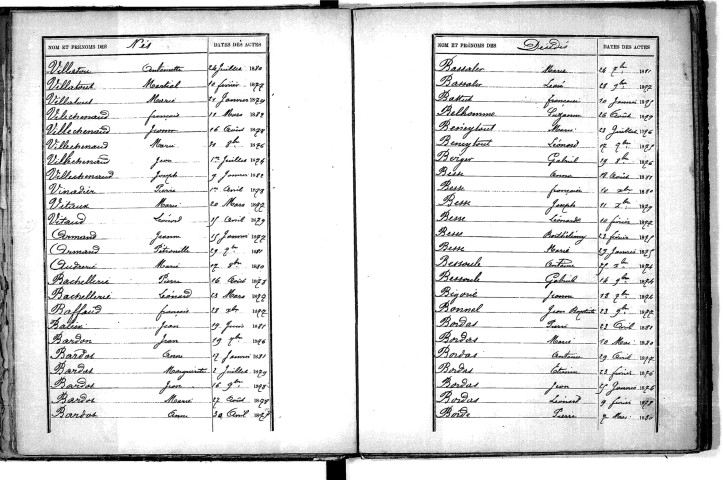 NOM ET PRÉNOMS DES Nés DATES DES ACTES
Villatou Antoinette 24 Juillet 1880
Villatout Martial 10 février 1877
Villatout Marie 21 Janvier 1879
Villechenaud françois 11 Mars 1882
Villechenaud Jeanne 16 Août 1878
Villechenaud Marie 20 8bre 1876
Villechenaud Jean 1er Juillet 1876
Villechenaud Joseph 9 Janvier 1881
Vinadier Pierre 1er Avril 1878
Vitaux Marie 20 Mars 1877
Vitaud Léonard 15 Avril 1879
Armand Jeanne 15 Janvier 1877
Armand Pétronille 29 9bre 1881
Audrerie Marie 17 xbre 1880
Bachellerie Pierre 16 Août 1878
Bachellerie Léonard 23 Mars 1877
Baffaud françois 28 xbre 1877
Balein Jean 19 Juin 1881
Bardon Jean 19 xbre 1876
Bardos Anne 17 Janvier 1881
Bardos Marguerite 2 Juillet 1879
Bardos Jean 16 9bre 1878
Bardos Marie 27 Août 1878
Bardos Anne 30 Avril 1878
NOM ET PRÉNOMS DES Décédés DATES DES ACTES
Bassaler Marie 26 7bre 1881
Bassaler Léon 28 9bre 1877
françoise 10 Janvier
Belhomme Suzanne 26 Août 1879
Beneytout Marie 23 Juillet 1876
Beneytout Léonard 17 9bre 1875
Berger Gabriel 19 8bre 1876
Besse Anna 18 Août 1881
Besse françoise 10 xbre 1880
Besse Joseph 11 xbre 1879
Besse Léonarde 10 février 1877
Besse Barthélémy 22 février 1875
Besse Marie 27 Janvier 1875
Bessoule Antoine 27 xbre 1874
Bessoule Gabriel 14 9bre 1874
Bigout Jeanne 12 9bre 1874
Bonnel Jean Baptiste 23 9bre 1877
Bordas Pierre 22 Avril 1881
Bordas Marie 10 Mars 1880
Bordas Antoine 29 Avril 1877
Bordas Etienne 22 février 1876
Bordas Jean 25 Janvier 1876
Bordas Léonard 9 février 1878
Borde Pierre 7 Mars 1880